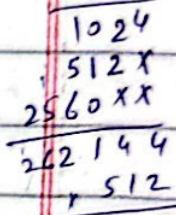 1024
512x
2560xx
262144
, 512